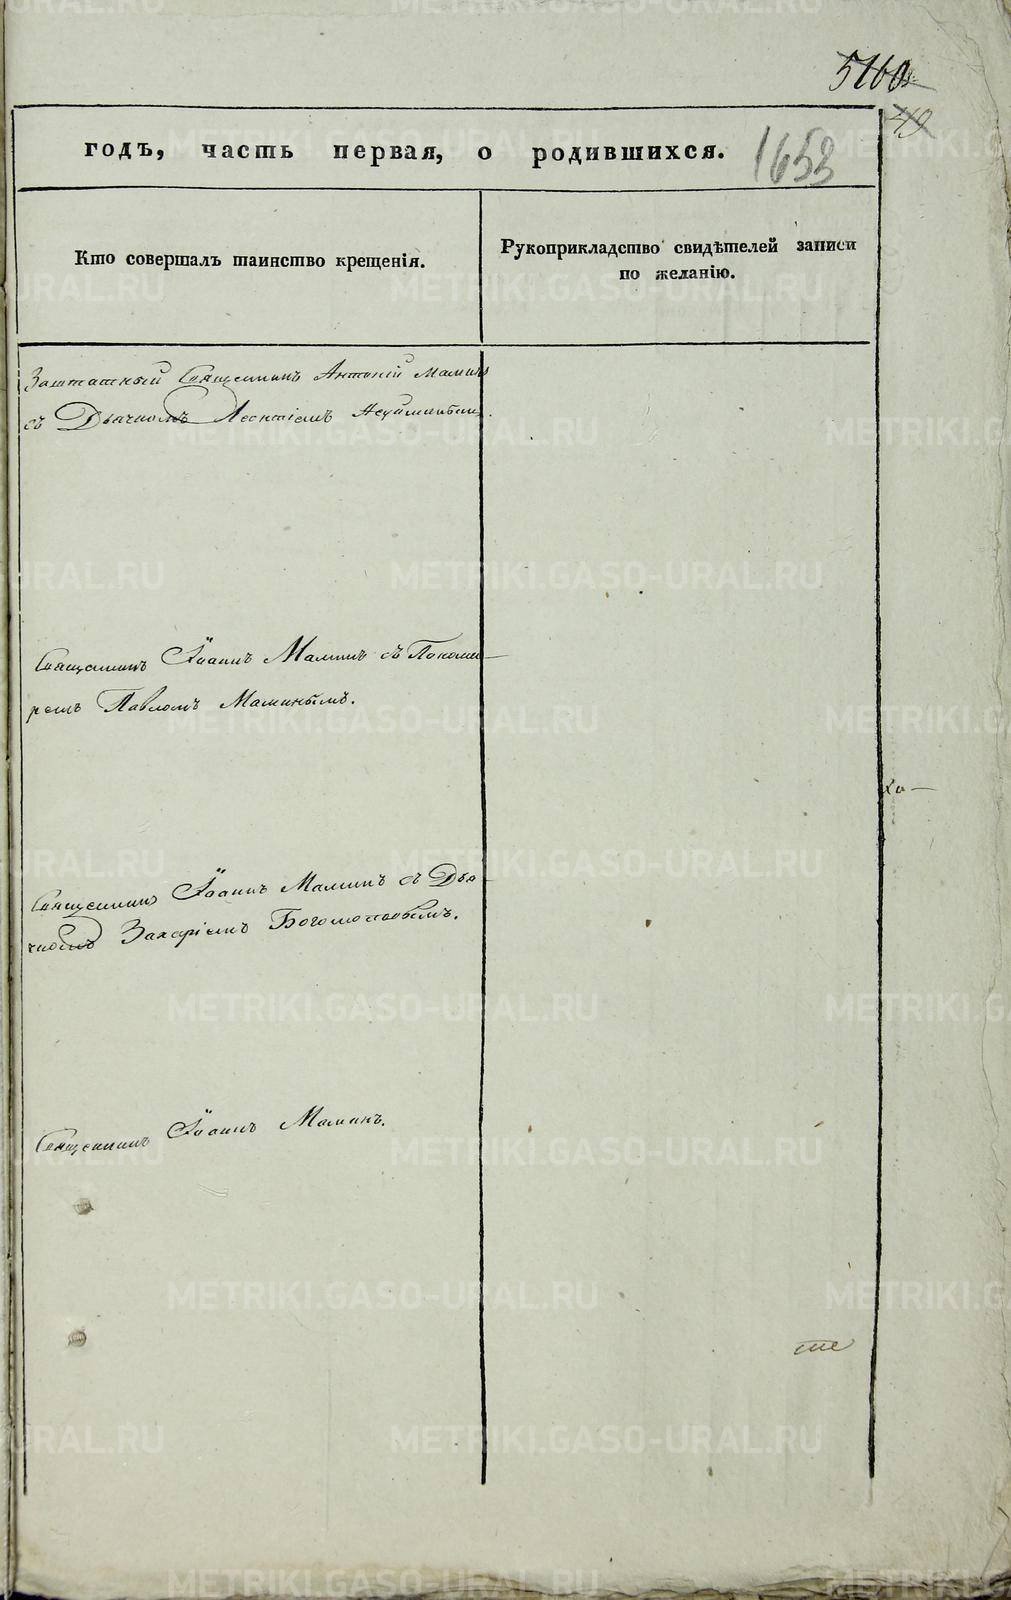 5160
49
годъ, часть первая, о родившихся. 1653
Кто совершалъ таинство крещенія.
Рукоприкладство свидѣтелей записи
по желанію.
Заштатный Священникъ Антоній Маминъ
съ Дьячкомъ Леонтіемъ
Священникъ Іоаннъ Маминъ съ Понома-
ремъ Павломъ Маминымъ.
Священникъ Іоаннъ Маминъ съ Дья-
чкомъ Захаріемъ Богомоловымъ.
Священникъ Іоаннъ Маминъ.
METRIKI.GASO-URAL.RU